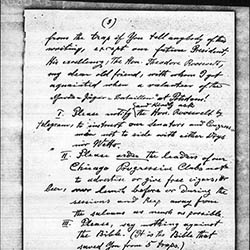 (3)
from the trap if You tell anybody of this
writing, except our future President.
His excellency, the Hon. Theodore Roosevelt,
my dear old friend, with whom I got
aquainted when a volunteer of the
Garde-Jäger-Batallion at Potsdam!
(and kindly ask
I. Please notify the Hon. Roosevelt by
telegram, to instruct our Senators and Congress-
men not to side with either Diaz
nor
II. Please order the leaders of our
Chicago Progressive Clubs not
to advertise or give free cigars
Beer, over lunch before or during the
sessions and keep away from
the saloons as much as possible.
III. Please, say nothing against
the Bible. (It is the Bible that
saved You from 5 traps.)